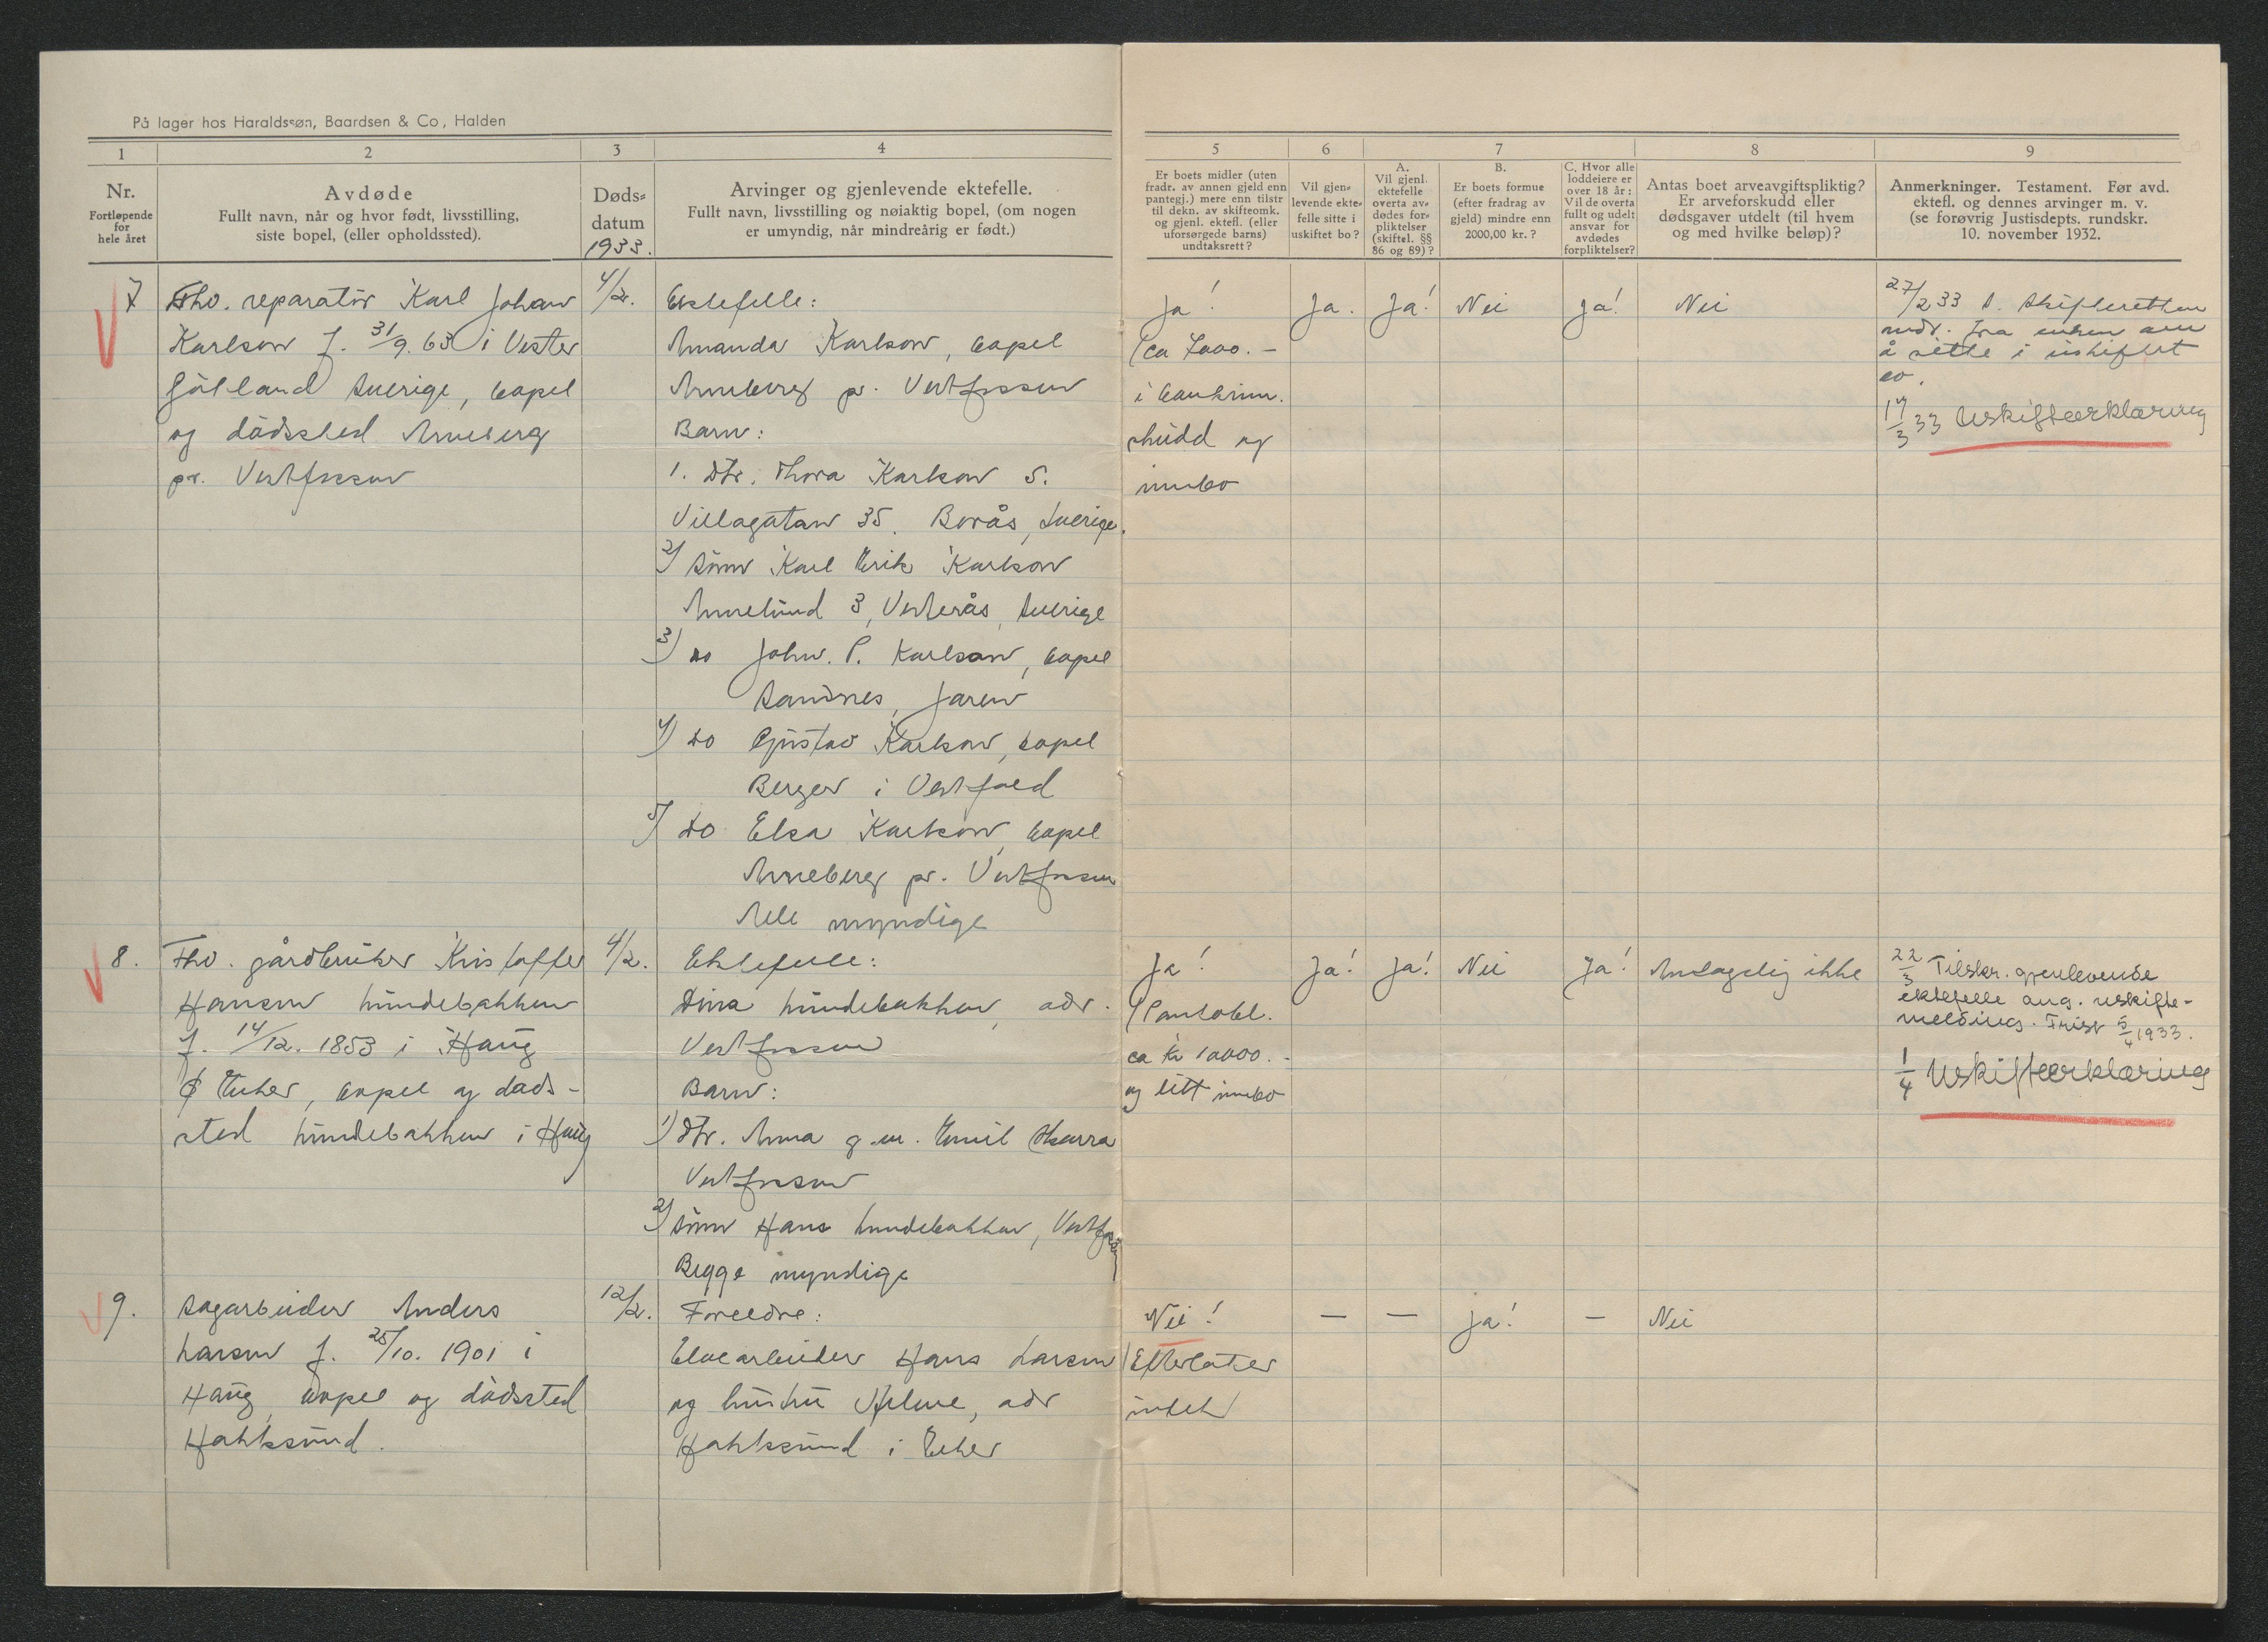 På lager hos Haraldssøn, Baardsen & Co, Halden
1
2
3
4
Nr.
Fortløpende
for
hele året
Avdøde
Fullt navn, når og hvor født, livsstilling,
siste bopel, (eller opholdssted).
Døds-
datum
1933.
Arvinger og gjenlevende ektefelle.
Fullt navn, livsstilling og nøiaktig bopel, (om nogen
er umyndig, når mindreårig er født.)
7
Fhv. reparatør Karl Johan
Karlson f. 31/9. 63 i Vester
Götland Sverige, bopel
og dødssted Anneberg
pr. Vestfossen
4/2.
Ektefelle:
Amanda Karlson, bopel
Anneberg pr. Vestfossen
Barn:
1. Dtr. Thora Karlson S.
Villagatan 35. Borås, Sverige.
2/ Sønn Karl Erik Karlson
Annelund 3, Vesterås, Sverige
3) Do John. P. Karlson, bopel
Sandnes, Jæren
4) Do Gustav Karlson, bopel
Berger i Vestfold
5/ Do Elsa Karlson, bopel
Anneberg pr. Vestfossen
Alle myndige
8.
Fhv. gårdbruker Kristoffer
Hansen Lundebakken
f. 14/12. 1853 i Haug
Eker, bopel og døds-
sted Lundebakken i Haug
4/2.
Ektefelle:
Dina Lundebakken, adr.
Vestfossen
Barn:
1) Dtr. Anna g.m. Emil Skarra
Vestfossen
2) Sønn Hans Lundebakken, Vestfossen
Begge myndige
9.
Sagarbeider Anders
Larsen f. 25/10. 1901 i
Haug, bopel og dødssted
Hokksund.
12/2.
Foreldre:
Hans Larsen
og hustru adr
Hokksund i Eker
5
6
7
8
9
Er boets midler (uten
fradr. av annen gjeld enn
pantegj.) mere enn tilstr
til dekn. av skifteomk.
og gjenl. ektefl. (eller
uforsørgede barns)
undtaksrett?
Vil gjen-
levende ekte-
felle sitte i
uskiftet bo?
A.
Vil gjenl.
ektefelle
overta av-
dødes for-
pliktelser
(skiftel. §§
86 og 89)?
B.
Er boets formue
(efter fradrag av
gjeld) mindre enn
2000,00 kr.?
C. Hvor alle
loddeiere er
over 18 år:
Vil de overta
fullt og udelt
ansvar for
avdødes
forpliktelser?
Antas boet arveavgiftspliktig?
Er arveforskudd eller
dødsgaver utdelt (til hvem
og med hvilke beløp)?
Anmerkninger. Testament. Før avd.
ektefl. og dennes arvinger m. v.
(se forøvrig Justisdepts. rundskr.
10. november 1932.
Ja!
(ca 7000.-
i bankinn-
skudd og
innbo
Ja.
Ja!
Nei
Ja!
Nei
27/2 33 skifteretten
fra enken om
å sitte i uskiftet
bo.
17/3 33 Uskifteerklæring
Ja!
(Pantobl.
ca kr 10000.-
og litt innbo
Ja!
Ja!
Nei
Ja!
Antagelig ikke
22/3 Tilskr. gjenlevende
ektefelle ang. uskifte-
melding. Frist 5/4 1933.
1/4 Uskifteerklæring
Nei!
(Efterlater
intet)
—
—
Ja!
—
Nei